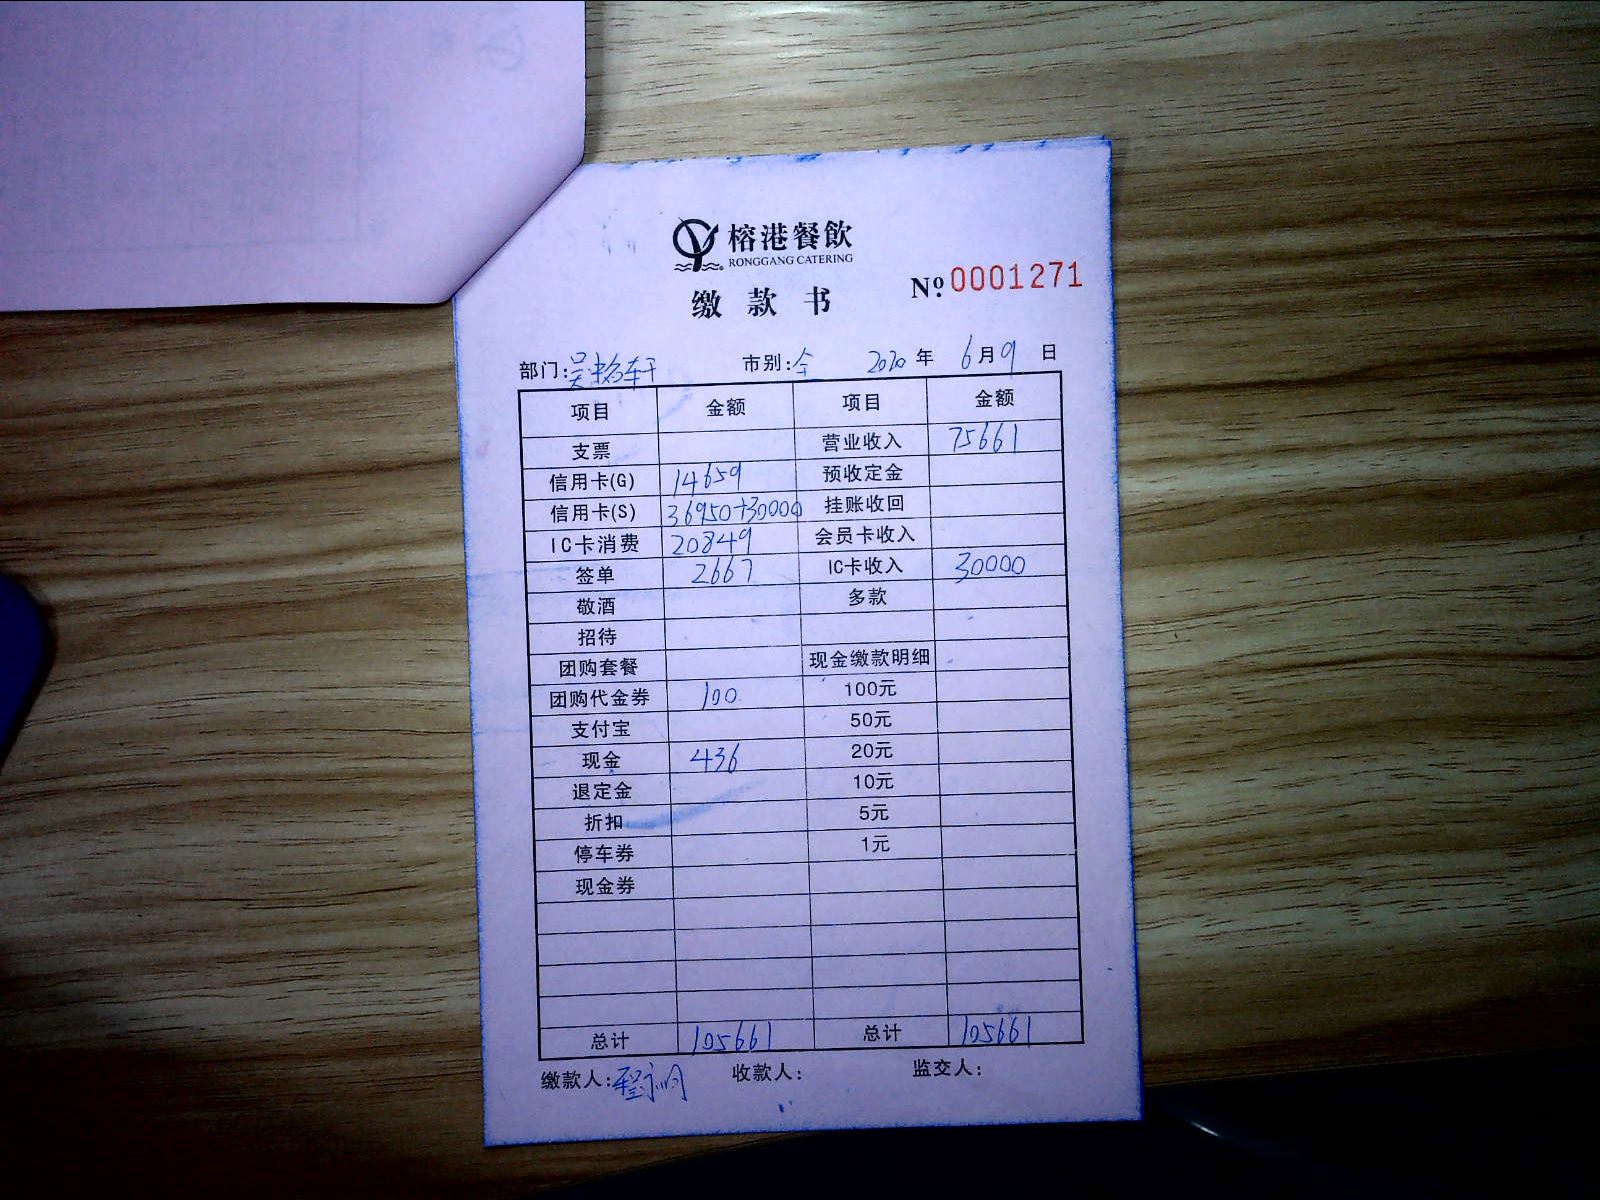 榕港餐飲
RONGGANG CATERING
缴款书
Nº.0001271
部门: 市别:全 2020年6月9日
项目 金额 项目 金额
支票 营业收入 75661
信用卡(G) 14659 预收定金
信用卡(S) 36950+30000 挂账收回
IC卡消费 20849 会员卡收入
签单 2667 IC卡收入 30000
敬酒 多款
招待
团购套餐 现金缴款明细
团购代金券 100 100元
支付宝 50元
现金 436 20元
退定金 10元
折扣 5元
停车券 1元
现金券
总计 105661 总计 105661
缴款人: 收款人: 监交人: